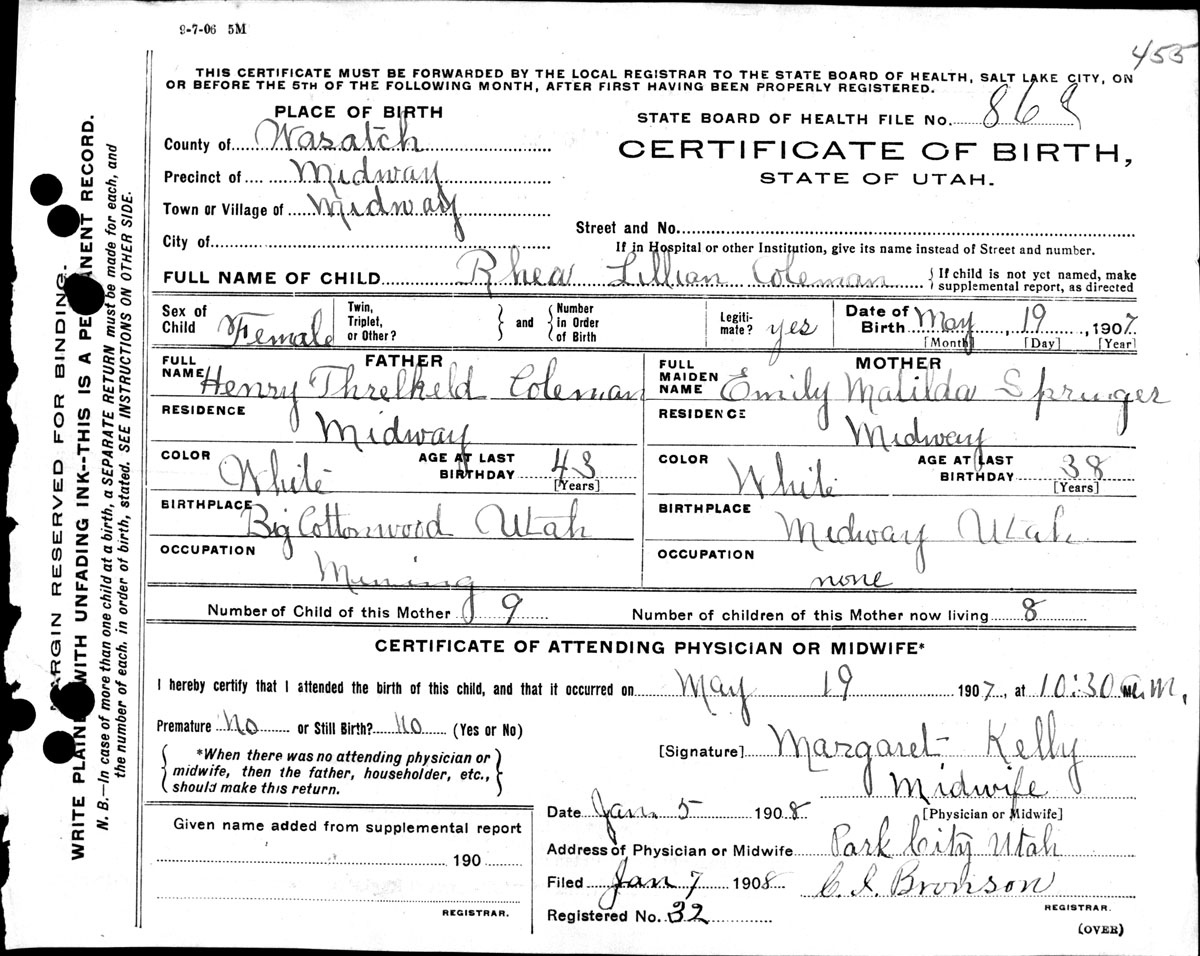 9-7-06 5M
455
THIS CERTIFICATE MUST BE FORWARDED BY THE LOCAL REGISTRAR TO THE STATE BOARD OF HEALTH, SALT LAKE CITY, ON
OR BEFORE THE 5TH OF THE FOLLOWING MONTH, AFTER FIRST HAVING BEEN PROPERLY REGISTERED.
PLACE OF BIRTH
STATE BOARD OF HEALTH FILE No. 869
County of Wasatch
CERTIFICATE OF BIRTH,
STATE OF UTAH.
Precinct of Midway
Town or Village of Midway
Street and No.
City of
If in Hospital or other Institution, give its name instead of Street and number.
FULL NAME OF CHILD Rhea Lillian Coleman { If child is not yet named, make
supplemental report, as directed
Sex of Child Female
Twin, Triplet, or Other? } and { Number in Order of Birth
Legiti-mate? yes
Date of Birth May 19, 1907
[Month] [Day] [Year]
FATHER
FULL NAME Henry Threlkeld Coleman
RESIDENCE
Midway
COLOR White AGE AT LAST BIRTHDAY 43
[Years]
BIRTHPLACE Big Cottonwood Utah
OCCUPATION
Mining
MOTHER
FULL MAIDEN NAME Emily Matilda Springer
RESIDENCE
Midway
COLOR White AGE AT LAST BIRTHDAY 38
[Years]
BIRTHPLACE Midway Utah
OCCUPATION
none
Number of Child of this Mother 9 Number of children of this Mother now living 8
CERTIFICATE OF ATTENDING PHYSICIAN OR MIDWIFE*
I hereby certify that I attended the birth of this child, and that it occurred on May 19 1907, at 10:30 a.m.
Premature No or Still Birth? No (Yes or No)
*When there was no attending physician or
midwife, then the father, householder, etc.,
should make this return.
[Signature] Margaret Kelly
Midwife
[Physician or Midwife]
Date Jan. 5 1908
Address of Physician or Midwife Park City Utah
Filed Jan 7 1908 C. I. Bronson
REGISTRAR.
Registered No. 32
(OVER)
Given name added from supplemental report
190
REGISTRAR.
MARGIN RESERVED FOR BINDING.
WRITE PLAINLY WITH UNFADING INK--THIS IS A PERMANENT RECORD.
N. B.--In case of more than one child at a birth, a SEPARATE RETURN must be made for each, and
the number of each, in order of birth, stated. SEE INSTRUCTIONS ON OTHER SIDE.